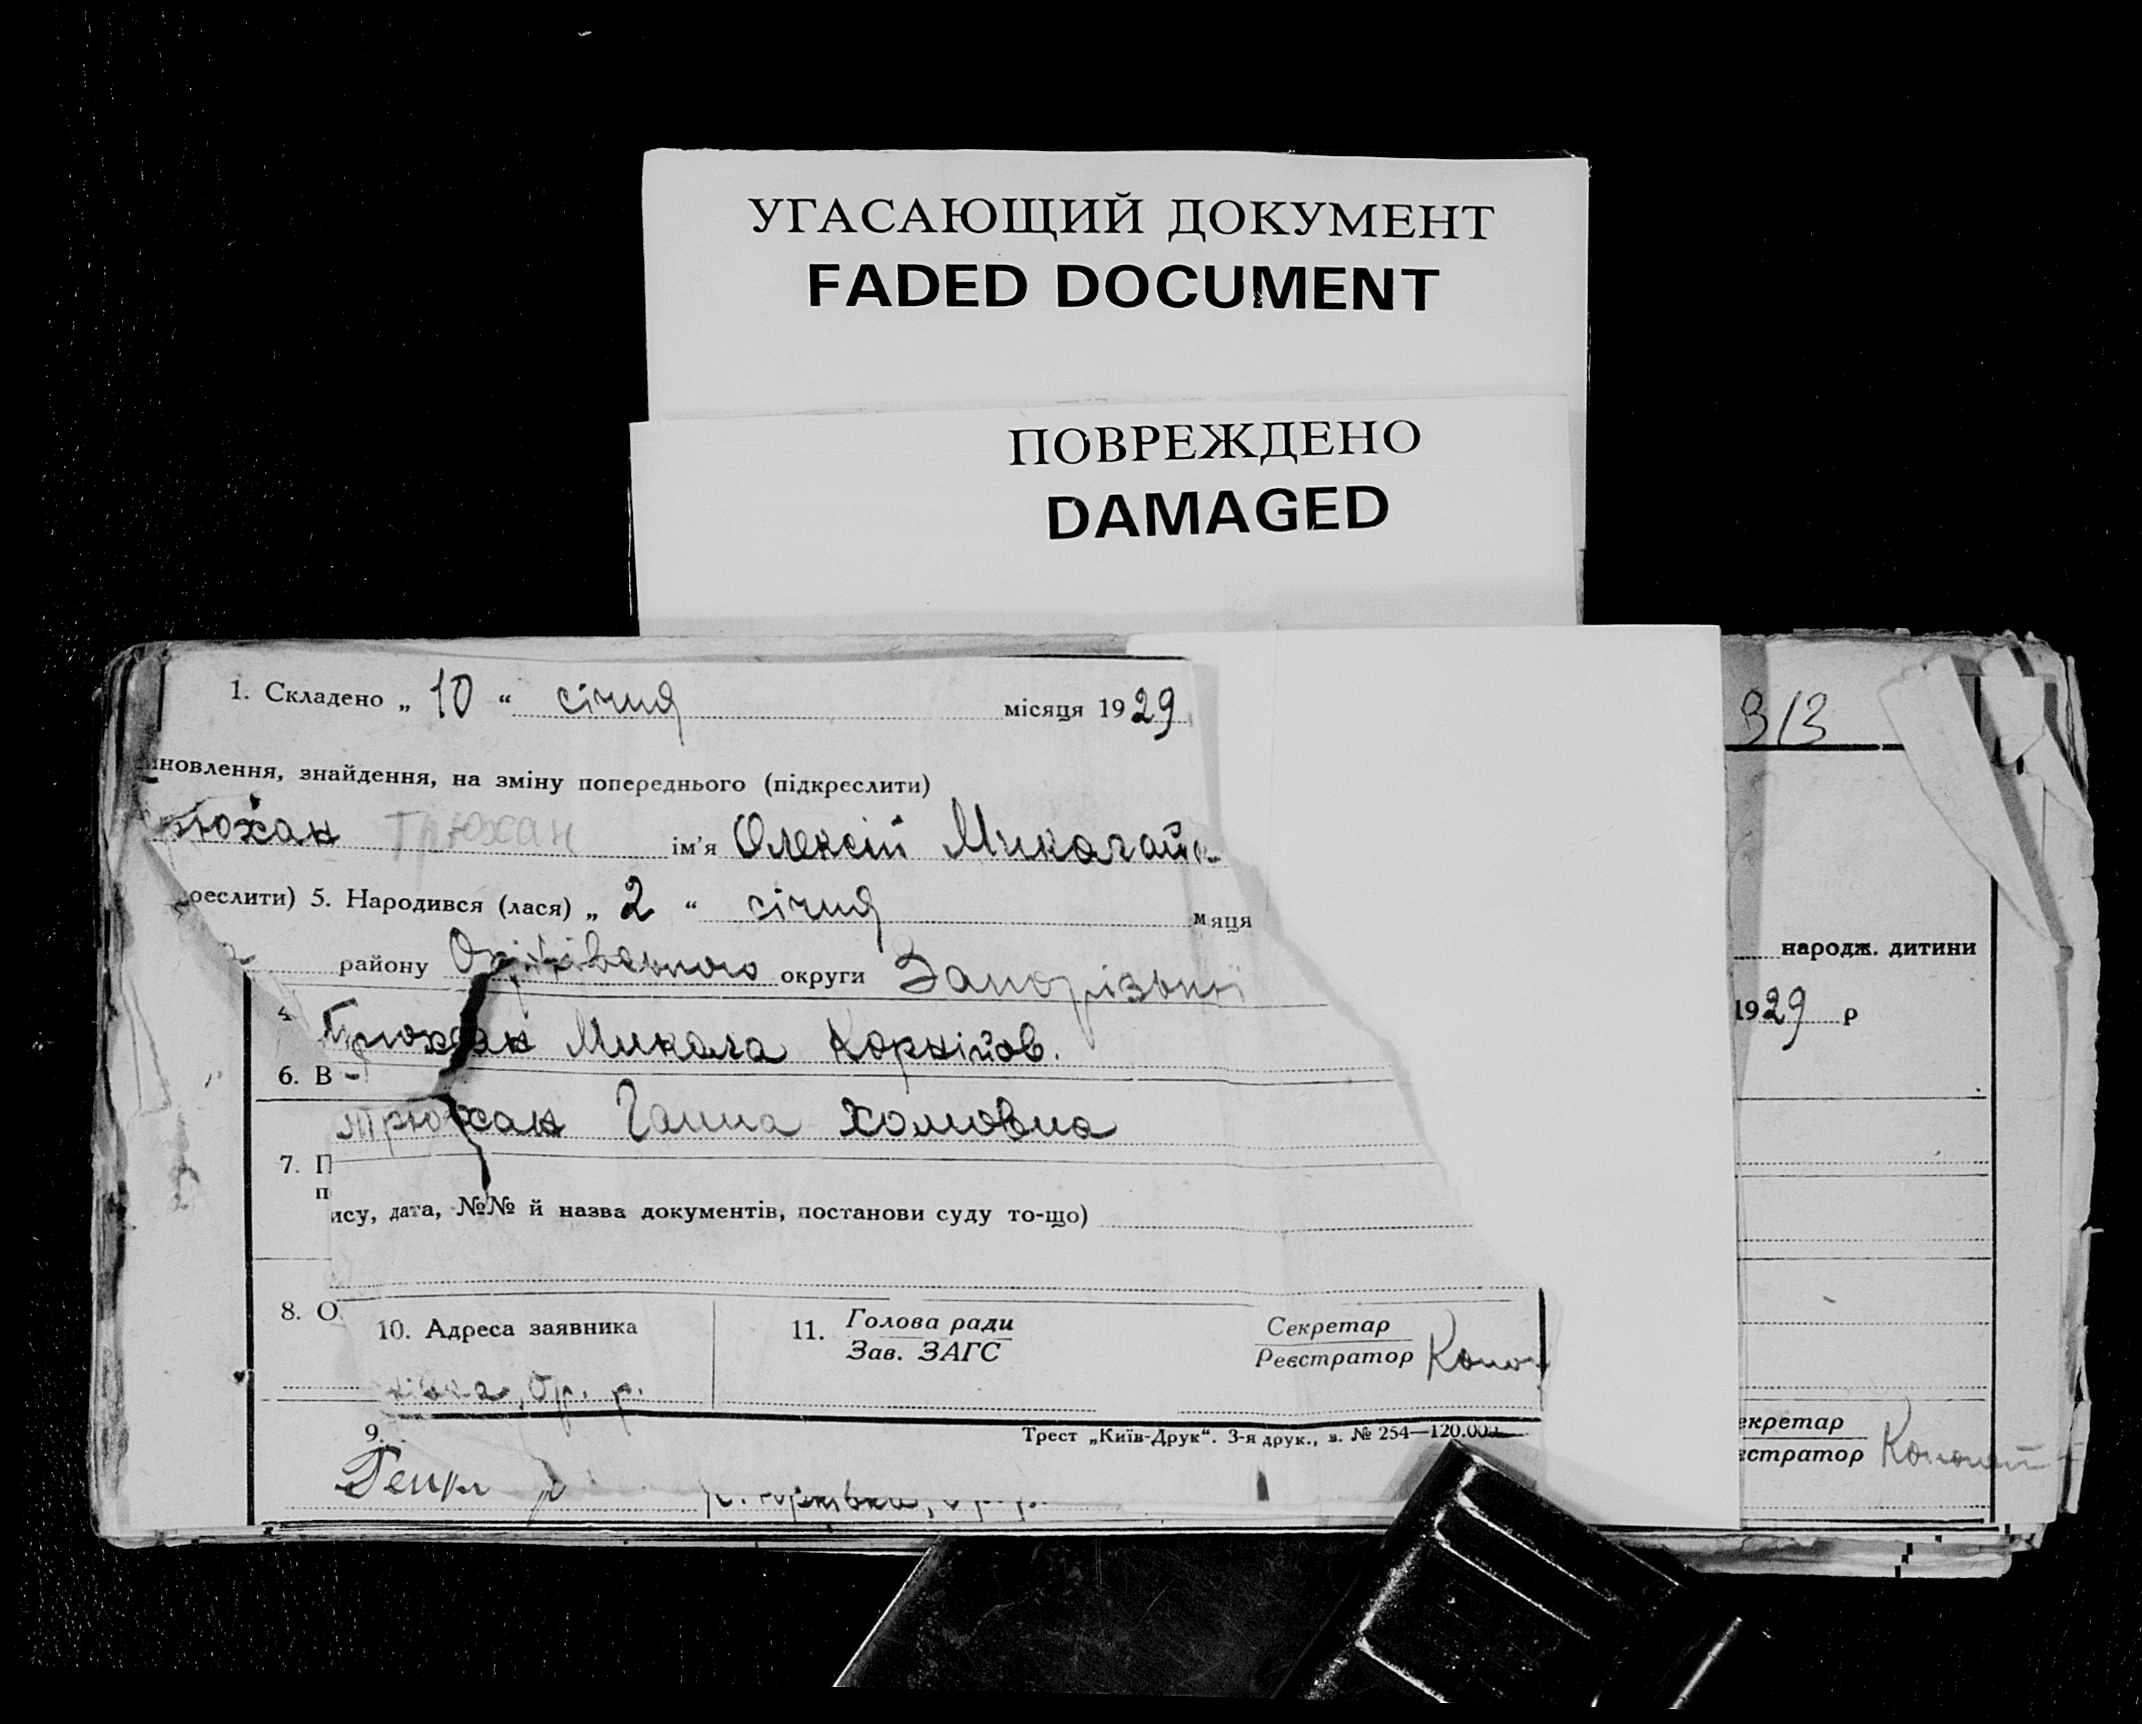 УГАСАЮЩИЙ ДОКУМЕНТ
FADED DOCUMENT
ПОВРЕЖДЕНО
DAMAGED
1. Складено „ 10 “ січня місяця 1929
новлення, знайдення, на зміну попереднього (підкреслити)
рюхан Трюхан ім'я Олексій Миколай
реслити) 5. Народився (лася) „ 2 “ січня м яця
району Оріхівського округи Запорізької
4 Трюхан Микола Корнійов.
6. В
Трюхан Ганна Хомовна
7. П
п
ису, дата, №№ й назва документів, постанови суду то-що)
8. О
10. Адреса заявника 11. Голова ради Секретар
Зав. ЗАГС Реєстратор Коно
ор. р.
9. Трест „Київ-Друк“. 3-я друк., з. № 254—120.000.
313
народж. дитини
1929 р
екретар
єстратор